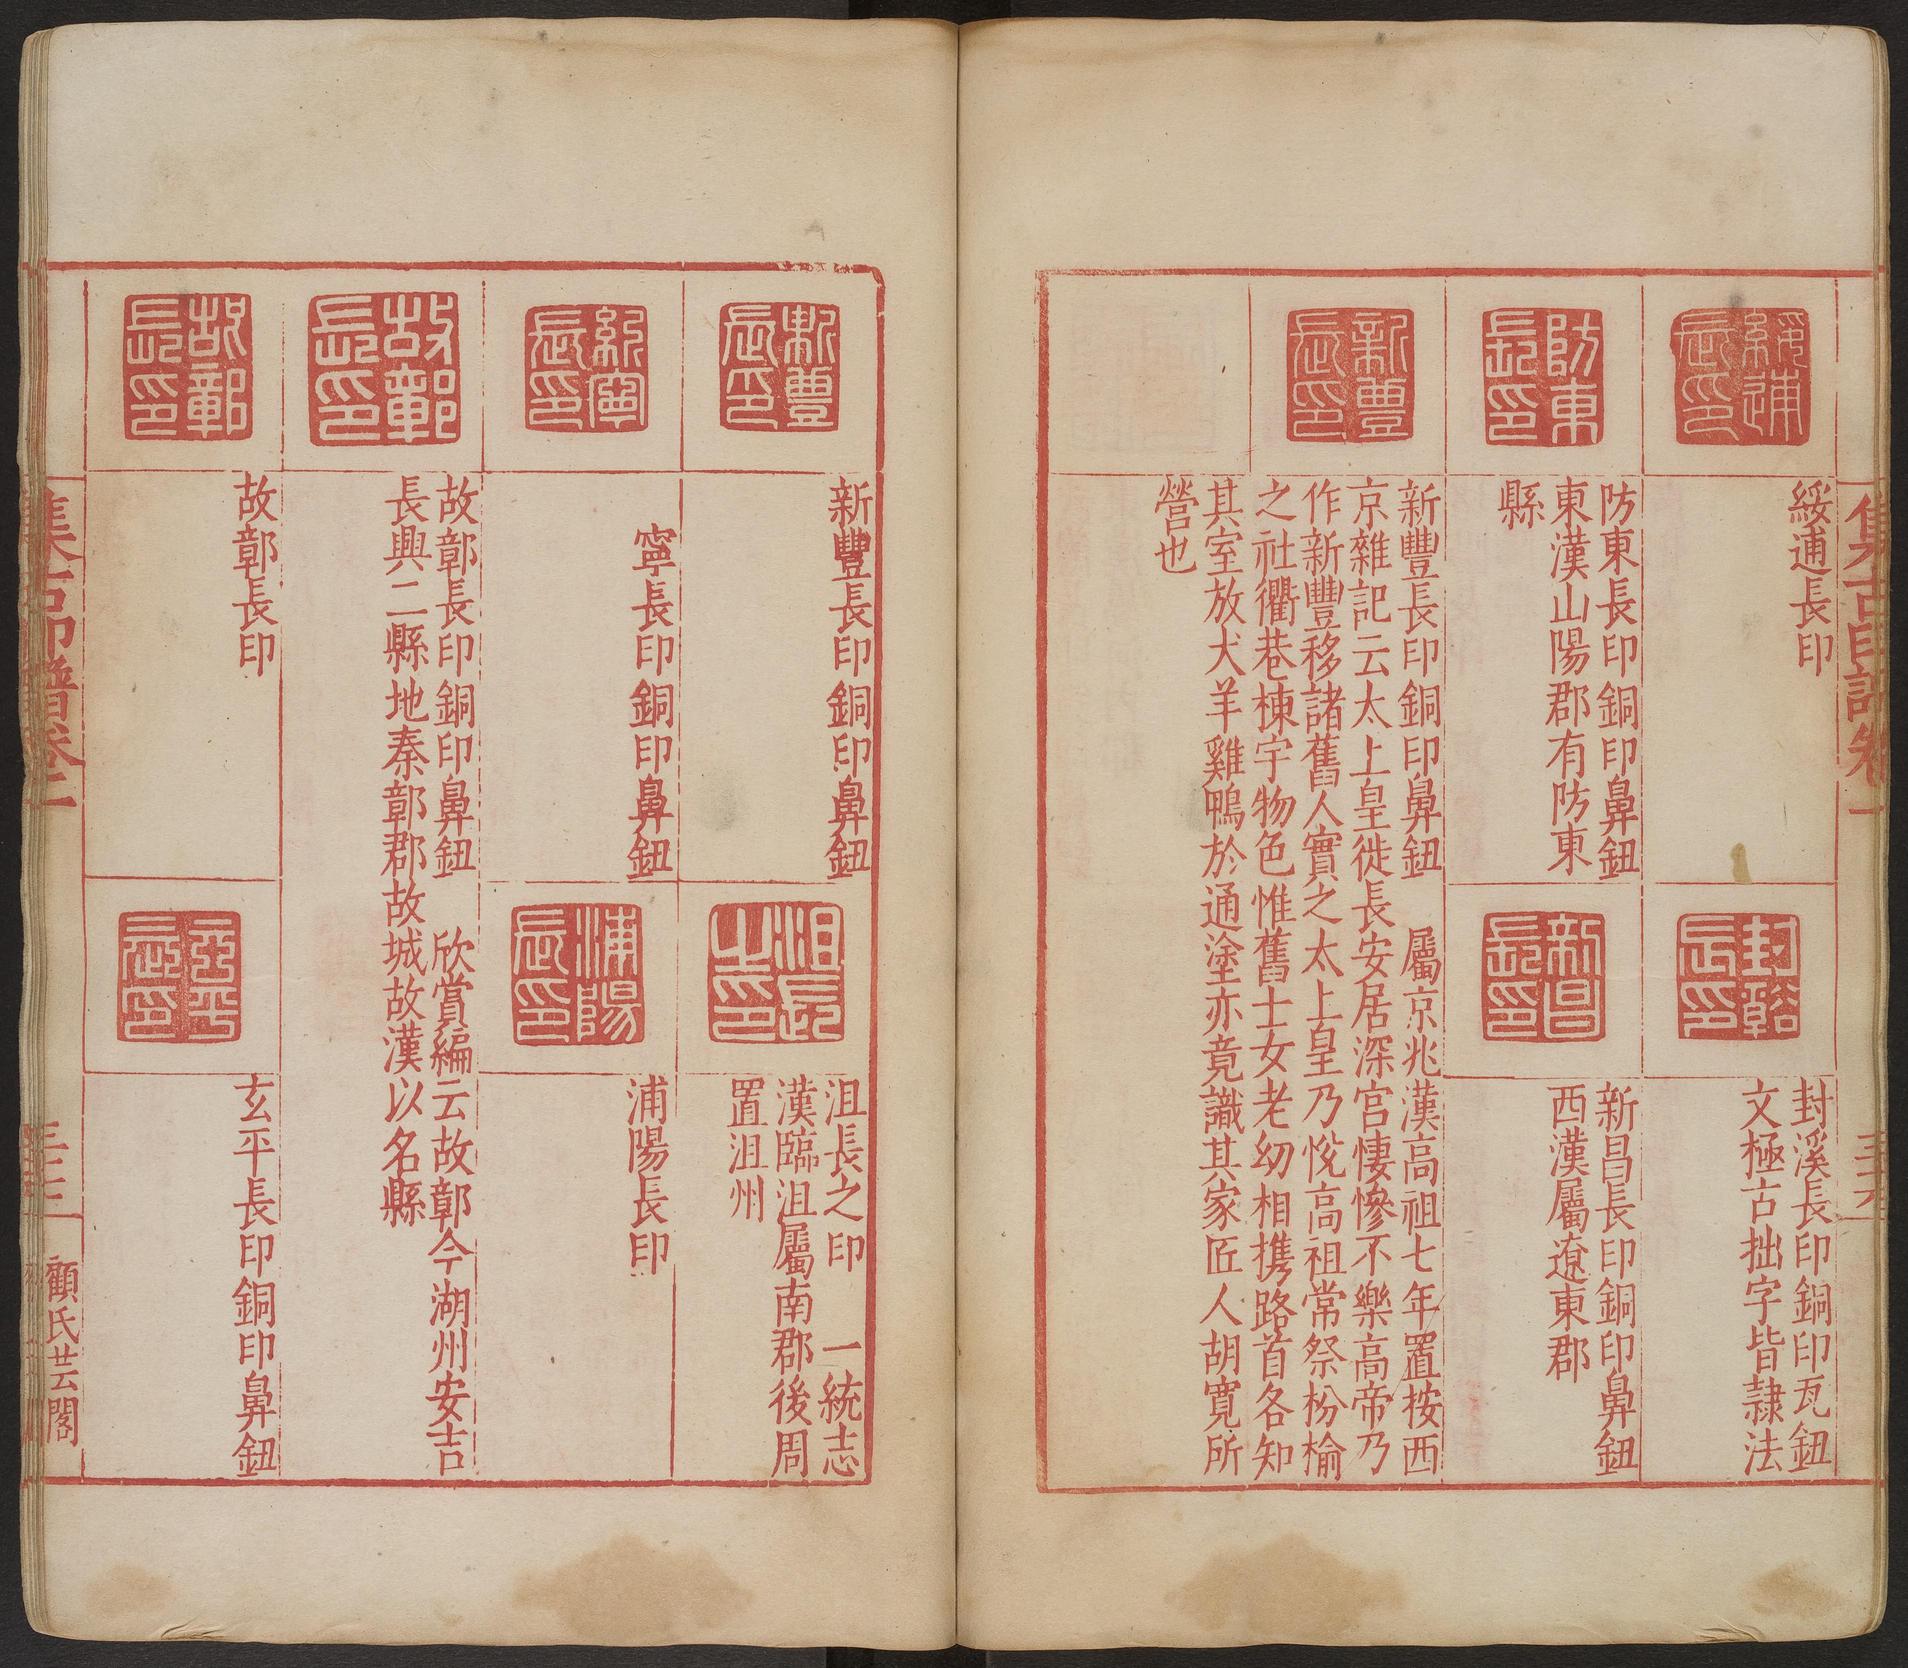 集古印譜卷二
綏逋長印
綏逋長印
封谿長印
封溪長印銅印瓦鈕
文極古拙字皆隷法
防東長印
防東長印銅印鼻鈕
東漢山陽郡有防東
縣
新昌長印
新昌長印銅印鼻鈕
西漢屬遼東郡
新豐長印
新豐長印銅印鼻鈕 屬京兆漢高祖七年置按西
京雜記云太上皇徙長安居深宮悽慘不樂高帝乃
作新豐移諸舊人實之太上皇乃悅高祖常祭枌榆
之社衢巷棟宇物色惟舊士女老幼相携路首各知
其室放犬羊雞鴨於通塗亦竟識其家匠人胡寬所
營也
新豐長印
新豐長印銅印鼻鈕
沮長之印
沮長之印 一統志
漢臨沮屬南郡後周
置沮州
寧長印
寧長印銅印鼻鈕
浦陽長印
浦陽長印
故鄣長印
故鄣長印銅印鼻鈕 欣賞編云故鄣今湖州安吉
長興二縣地秦鄣郡故城故漢以名縣
故鄣長印
故鄣長印
玄平長印銅印鼻鈕
集古印譜卷二
顧氏芸閣